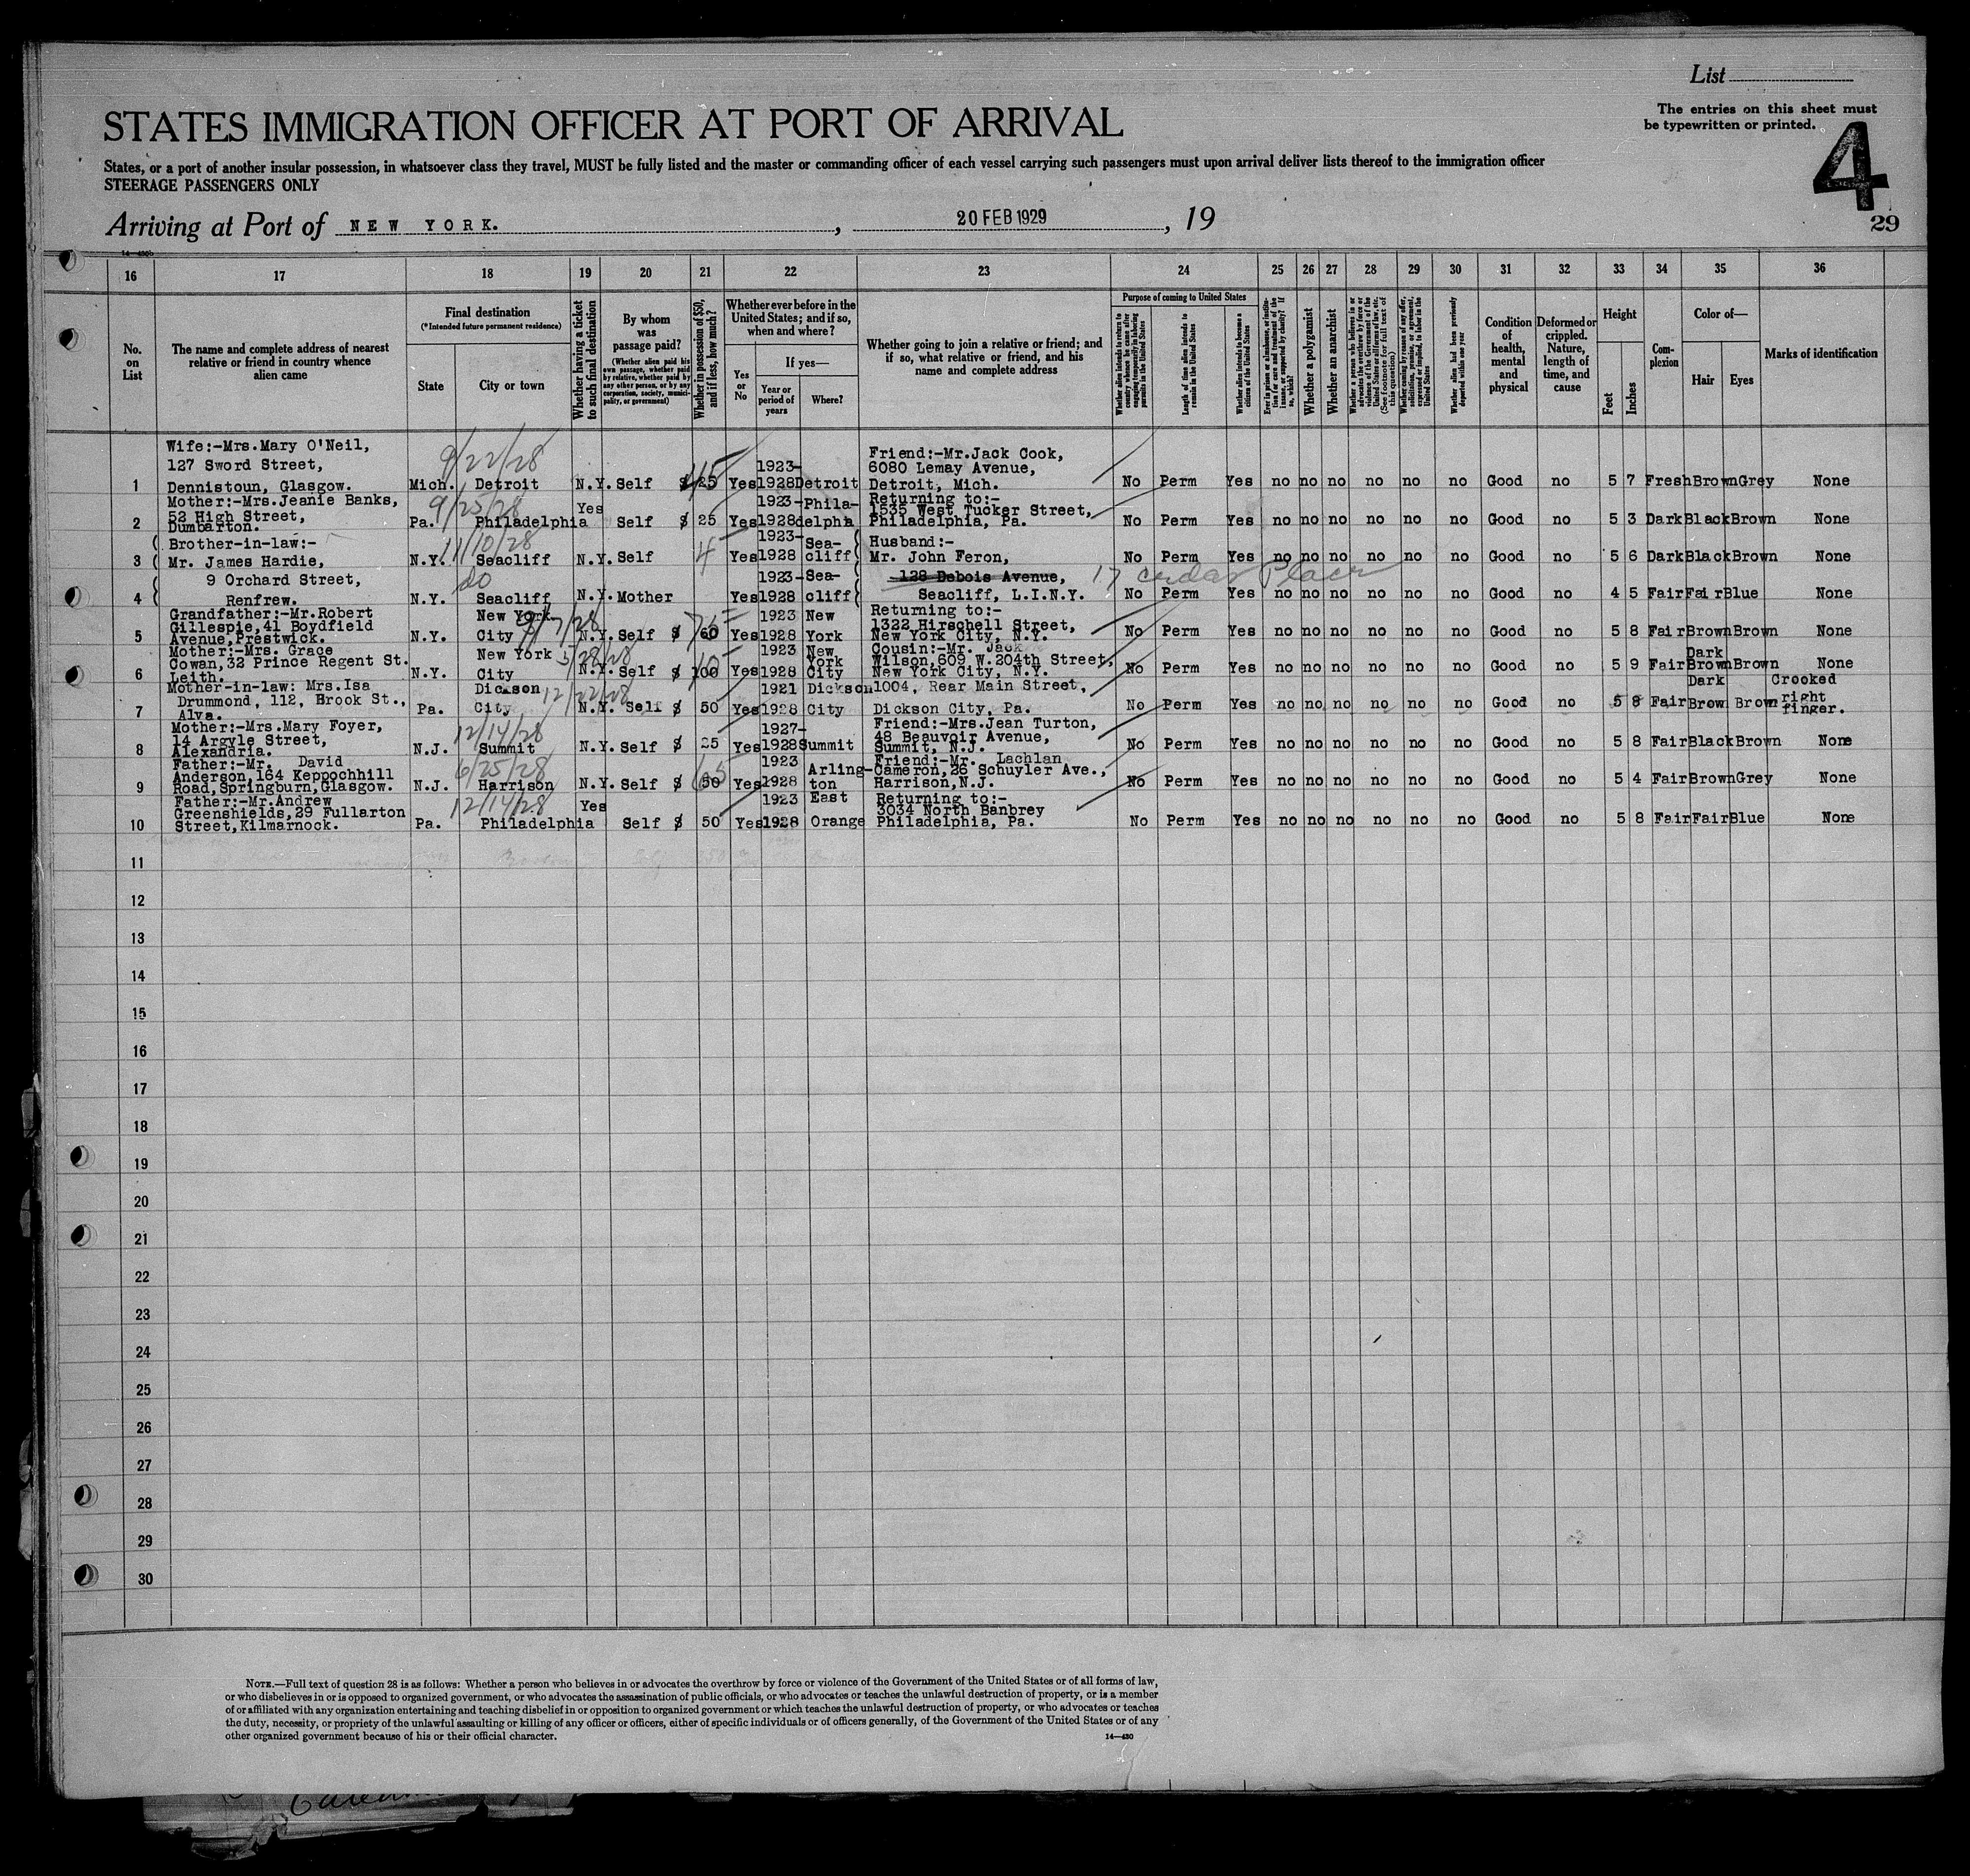 List
The entries on this sheet must
be typewritten or printed.
4
29
STATES IMMIGRATION OFFICER AT PORT OF ARRIVAL
States, or a port of another insular possession, in whatsoever class they travel, MUST be fully listed and the master or commanding officer of each vessel carrying such passengers must upon arrival deliver lists thereof to the immigration officer
STEERAGE PASSENGERS ONLY
Arriving at Port of NEW YORK. , 20 FEB 1929 , 19
16 17 18 19 20 21 22 23 24 25 26 27 28 29 30 31 32 33 34 35 36
No. on List
The name and complete address of nearest relative or friend in country whence alien came
Final destination
(*Intended future permanent residence)
State
City or town
Whether having a ticket to such final destination
By whom was passage paid?
(Whether alien paid his own passage, whether paid by relative, whether paid by any other person, or by any corporation, society, municipality, or government)
Whether in possession of $50, and if less, how much?
Whether ever before in the United States; and if so, when and where?
Yes or No
If yes—
Year or period of years
Where?
Whether going to join a relative or friend; and if so, what relative or friend, and his name and complete address
Purpose of coming to United States
Whether alien intends to return to country whence he came after engaging temporarily in laboring pursuits in the United States
Length of time alien intends to remain in the United States
Whether alien intends to become a citizen of the United States
Ever in prison or almshouse, or institution for care and treatment of the insane, or supported by charity? If so, which?
Whether a polygamist
Whether an anarchist
Whether a person who believes in or advocates the overthrow by force or violence of the Government of the United States or all forms of law, etc. (See footnote for full text of this question)
Whether coming by reason of any offer, solicitation, promise, or agreement, expressed or implied, to labor in the United States
Whether alien had been previously deported within one year
Condition of health, mental and physical
Deformed or crippled. Nature, length of time, and cause
Height
Feet
Inches
Complexion
Color of—
Hair
Eyes
Marks of identification
Wife:-Mrs.Mary O'Neil,
127 Sword Street,
1 Dennistoun, Glasgow. Mich. Detroit 9/22/28 N.Y. Self $ 25 45 Yes 1923-1928 Detroit Friend:-Mr.Jack Cook, 6080 Lemay Avenue, Detroit, Mich. No Perm Yes no no no no no no Good no 5 7 Fresh Brown Grey None
Mother:-Mrs.Jeanie Banks,
52 High Street,
2 Dumbarton. Pa. Philadelphia 9/25/28 Yes Self $ 25 Yes 1923-1928 Phila-delphia Returning to:- 1535 West Tucker Street, Philadelphia, Pa. No Perm Yes no no no no no no Good no 5 3 Dark Black Brown None
Brother-in-law:-
3 Mr. James Hardie, N.Y. Seacliff 11/10/28 N.Y. Self 4 Yes 1923-1928 Sea-cliff Husband:- Mr. John Feron, No Perm Yes no no no no no no Good no 5 6 Dark Black Brown None
9 Orchard Street,
4 Renfrew. N.Y. Seacliff do N.Y. Mother Yes 1923-1928 Sea-cliff 128 Debois Avenue, 17 cedar Place Seacliff, L.I.N.Y. No Perm Yes no no no no no no Good no 4 5 Fair Fair Blue None
Grandfather:-Mr.Robert
Gillespie,41 Boydfield
5 Avenue,Prestwick. N.Y. New York City N.Y. Self $ 60 Yes 1923 1928 New York Returning to:- 1322 Hirschell Street, New York City, N.Y. No Perm Yes no no no no no no Good no 5 8 Fair Brown Brown None
Mother:-Mrs. Grace
Cowan,32 Prince Regent St.
6 Leith. N.Y. New York City N.Y. Self $ 100 Yes 1923 1928 New York City Cousin:-Mr. Jack Wilson,609 W.204th Street, New York City, N.Y. No Perm Yes no no no no no no Good no 5 9 Fair Dark Brown Brown None
Mother-in-law: Mrs.Isa
Drummond, 112, Brook St.,
7 Alva. Pa. Dickson City 12/22/28 N.Y. Self $ 50 Yes 1921 1928 Dickson City 1004, Rear Main Street, Dickson City, Pa. No Perm Yes no no no no no no Good no 5 8 Fair Dark Brow Brown Crooked right finger.
Mother:-Mrs.Mary Foyer,
14 Argyle Street,
8 Alexandria. N.J. Summit 12/14/28 N.Y. Self $ 25 Yes 1927-1928 Summit Friend:-Mrs.Jean Turton, 48 Beauvoir Avenue, Summit, N.J. No Perm Yes no no no no no no Good no 5 8 Fair Black Brown None
Father:-Mr. David
Anderson,164 Keppochhill
9 Road,Springburn,Glasgow. N.J. Harrison 6/25/28 N.Y. Self $ 50 Yes 1923 1928 Arling-ton Friend:-Mr. Lachlan Cameron,26 Schuyler Ave., Harrison,N.J. No Perm Yes no no no no no no Good no 5 4 Fair Brown Grey None
Father:-Mr.Andrew
Greenshields,29 Fullarton
10 Street,Kilmarnock. Pa. Philadelphia 12/14/28 Yes Self $ 50 Yes 1923 1928 East Orange Returning to:- 3034 North Banbrey Philadelphia, Pa. No Perm Yes no no no no no no Good no 5 8 Fair Fair Blue None
11
12
13
14
15
16
17
18
19
20
21
22
23
24
25
26
27
28
29
30
NOTE.—Full text of question 28 is as follows: Whether a person who believes in or advocates the overthrow by force or violence of the Government of the United States or of all forms of law,
or who disbelieves in or is opposed to organized government, or who advocates the assassination of public officials, or who advocates or teaches the unlawful destruction of property, or is a member
of or affiliated with any organization entertaining and teaching disbelief in or opposition to organized government or which teaches the unlawful destruction of property, or who advocates or teaches
the duty, necessity, or propriety of the unlawful assaulting or killing of any officer or officers, either of specific individuals or of officers generally, of the Government of the United States or of any
other organized government because of his or their official character.
14—430